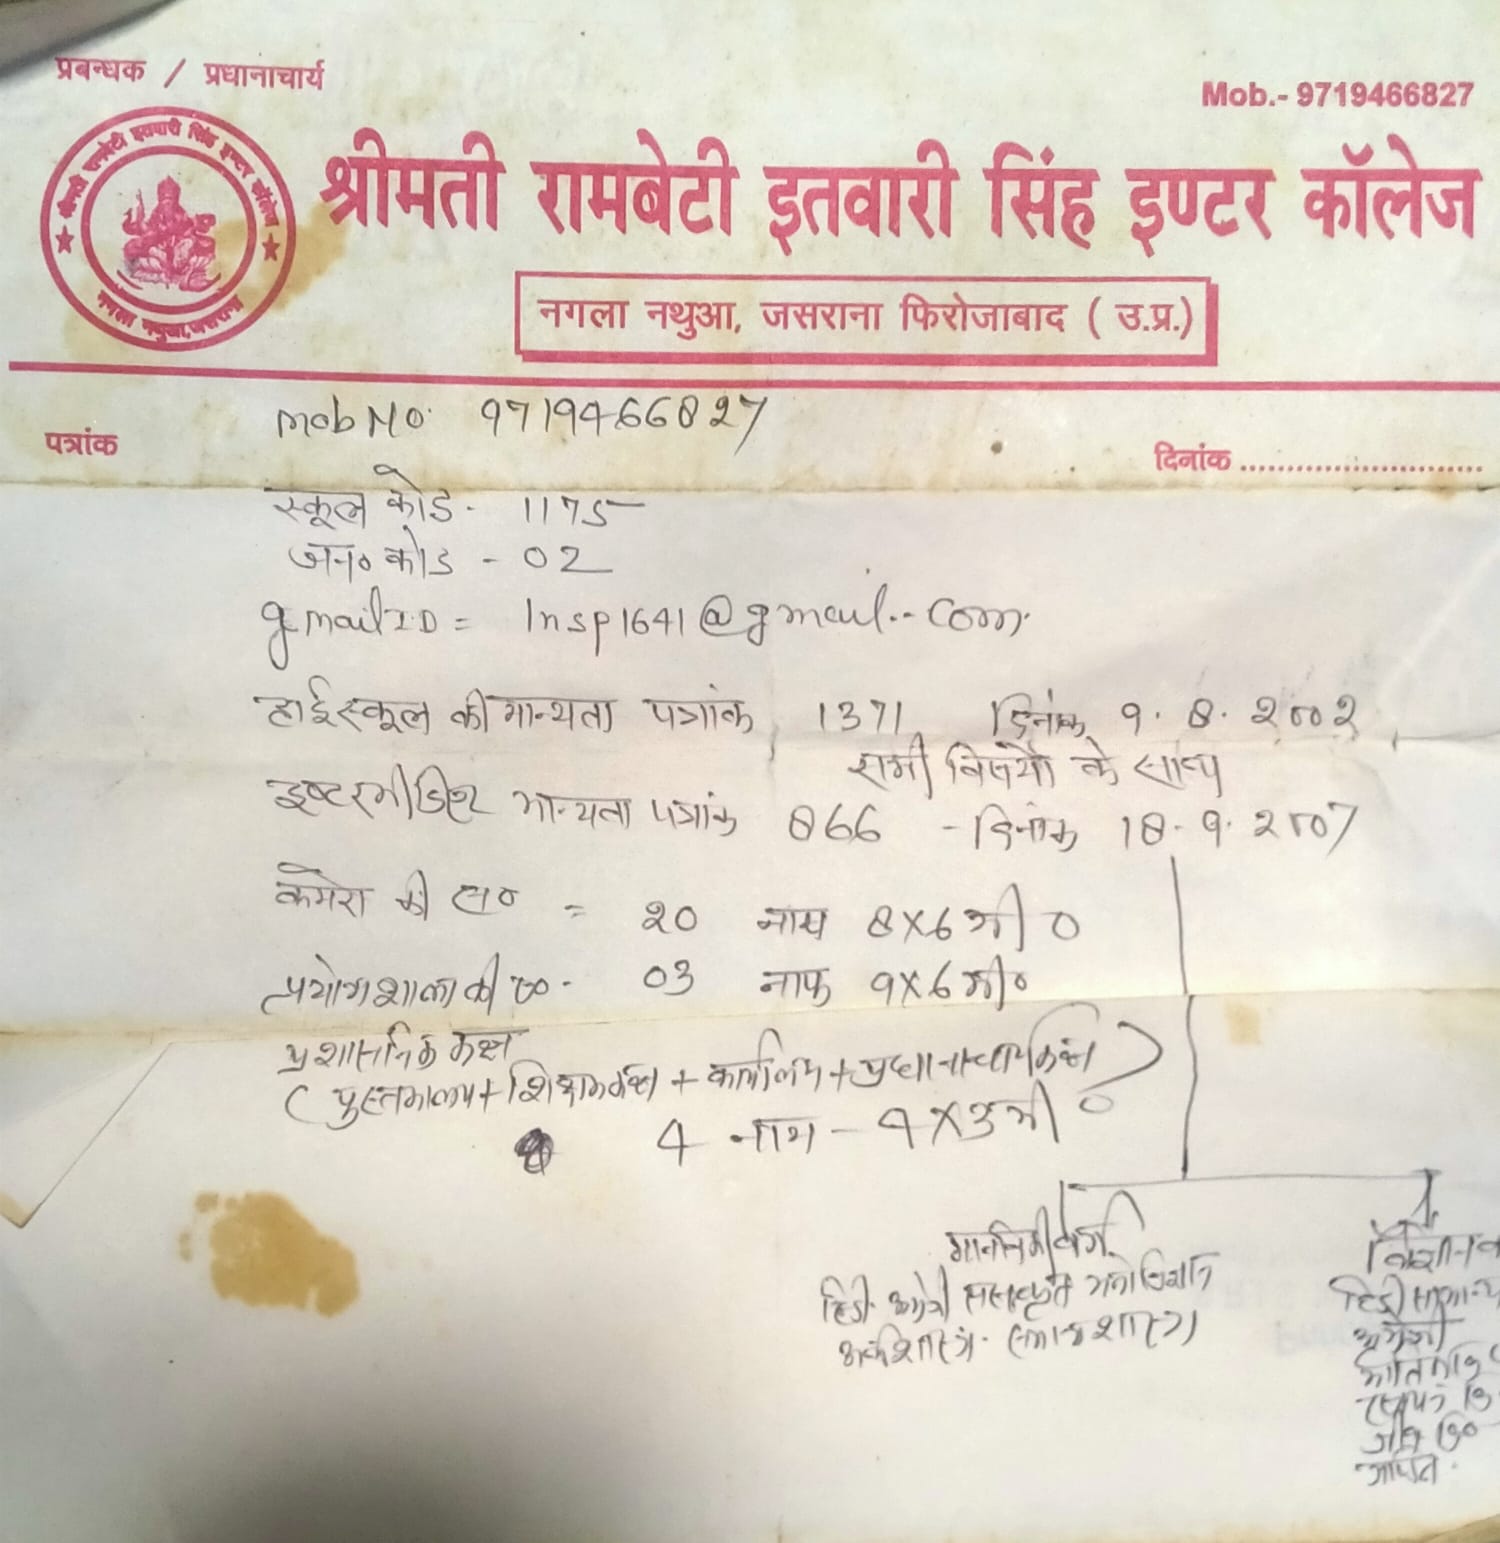 प्रबन्धक / प्रधानाचार्य
Mob.- 9719466827
श्रीमती रामबेटी इतवारी सिंह इण्टर कॉलेज
श्रीमती रामबेटी इतवारी सिंह इण्टर कॉलेज
नगला नथुआ, जसराना
नगला नथुआ, जसराना फिरोजाबाद ( उ.प्र.)
Mob No. 9719466827
पत्रांक
दिनांक ..............................
स्कूल कोड - 1175
जन० कोड - 02
gmail I.D = Insp1641@gmail..com.
हाईस्कूल की मान्यता पत्रांक 1371 दिनांक 9.8.2002
सभी विषयों के साथ
इण्टरमीडिएट मान्यता पत्रांक 866 - दिनांक 18.9.2007
कमरा की स० = 20 नाप 8x6 मी०
प्रयोगशाला की स० - 03 नाप 9x6 मी०
प्रशासनिक कक्ष
( पुस्तकालय + शिक्षक कक्ष + कार्यालय + प्रधानाचार्य कक्ष )
4 नाप - 4x3 मी०
मानविकी वर्ग
हिन्दी अंग्रेजी संस्कृत मनोविज्ञान
अर्थशास्त्र - समाजशास्त्र
हिन्दी सामान्य
अंग्रेजी
गणित